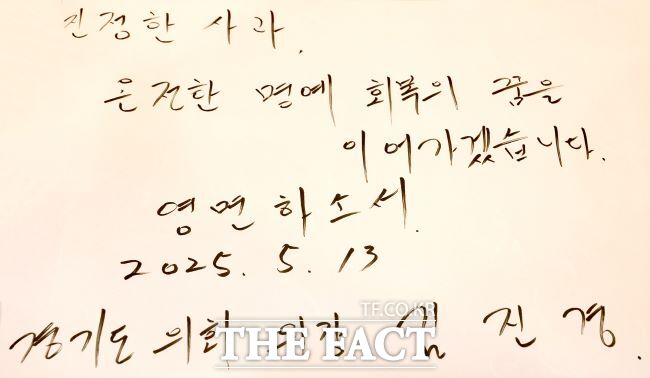 진정한 사과,
온전한 명예 회복의 꿈을
이어가겠습니다.
영면하소서.
2025. 5. 13
경기도의회 의장 김진경.
TF.CO.KR
THE FACT